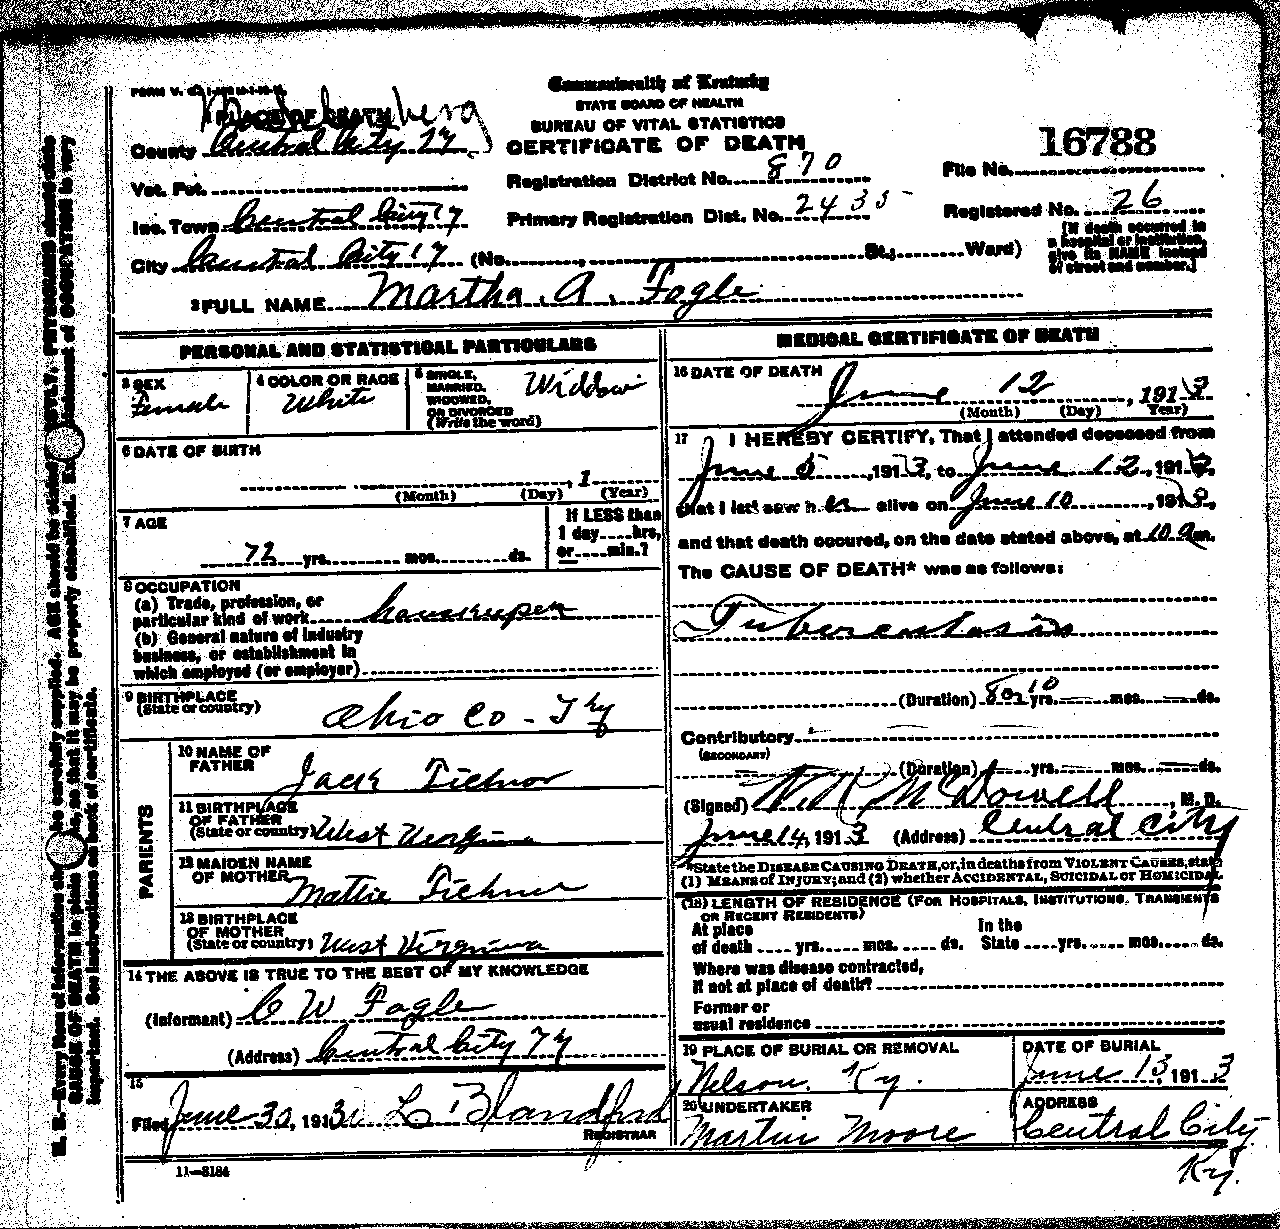 Commonwealth of Kentucky
STATE BOARD OF HEALTH
BUREAU OF VITAL STATISTICS
CERTIFICATE OF DEATH
1 PLACE OF DEATH
County Central City Ky
Vot. Pct.
Inc. Town Central City Ky
City Central City Ky (No. , St.; Ward)
Registration District No. 870
Primary Registration Dist. No. 2435
16788
File No.
Registered No. 26
[If death occurred in
a hospital or institution,
give its NAME instead
of street and number.]
2 FULL NAME Martha . A . Fogle
PERSONAL AND STATISTICAL PARTICULARS
3 SEX
Female
4 COLOR OR RACE
White
5 SINGLE,
MARRIED,
WIDOWED,
OR DIVORCED
(Write the word)
Widdow
6 DATE OF BIRTH
, 1
(Month) (Day) (Year)
7 AGE
72 yrs. mos. ds.
If LESS than
1 day hrs,
or min.?
8 OCCUPATION
(a) Trade, profession, or
particular kind of work housekeeper
(b) General nature of industry
business, or establishment in
which employed (or employer)
9 BIRTHPLACE
(State or country)
Ohio Co - Ky
PARIENTS
10 NAME OF
FATHER
Jack Tichnor
11 BIRTHPLACE
OF FATHER
(State or country) West Virginia
12 MAIDEN NAME
OF MOTHER
Mattie Tichnor
13 BIRTHPLACE
OF MOTHER
(State or country) West Virginia
14 THE ABOVE IS TRUE TO THE BEST OF MY KNOWLEDGE
(Informant) C W Fogle
(Address) Central City Ky
15
Filed June 30, 1913 L Blandford
REGISTRAR
11—3184
MEDICAL CERTIFICATE OF DEATH
16 DATE OF DEATH
June 12, 1913
(Month) (Day) Year)
17 I HEREBY CERTIFY, That I attended deceased from
June 5, 1913, to June 12, 1913,
that I last saw her alive on June 10, 1913,
and that death occured, on the date stated above, at 10 am.
The CAUSE OF DEATH* was as follows:
Tuberculosis
(Duration) 8 or 10 yrs. mos. ds.
Contributory
(SECONDARY)
(Duration) yrs. mos. ds.
(Signed) McDowell, M. D.
June 14, 1913 (Address) Central City
*State the DISEASE CAUSING DEATH, or, in deaths from VIOLENT CAUSES, state
(1) MEANS of INJURY; and (2) whether ACCIDENTAL, SUICIDAL or HOMICIDAL.
(18) LENGTH OF RESIDENCE (FOR HOSPITALS, INSTITUTIONS, TRANSIENTS
OR RECENT RESIDENTS)
At place In the
of death yrs. mos. ds. State yrs. mos. ds.
Where was disease contracted,
if not at place of death?
Former or
usual residence
19 PLACE OF BURIAL OR REMOVAL
Nelson. Ky.
DATE OF BURIAL
June 13, 1913
20 UNDERTAKER
Martin Moore
ADDRESS
Central City
Ky.